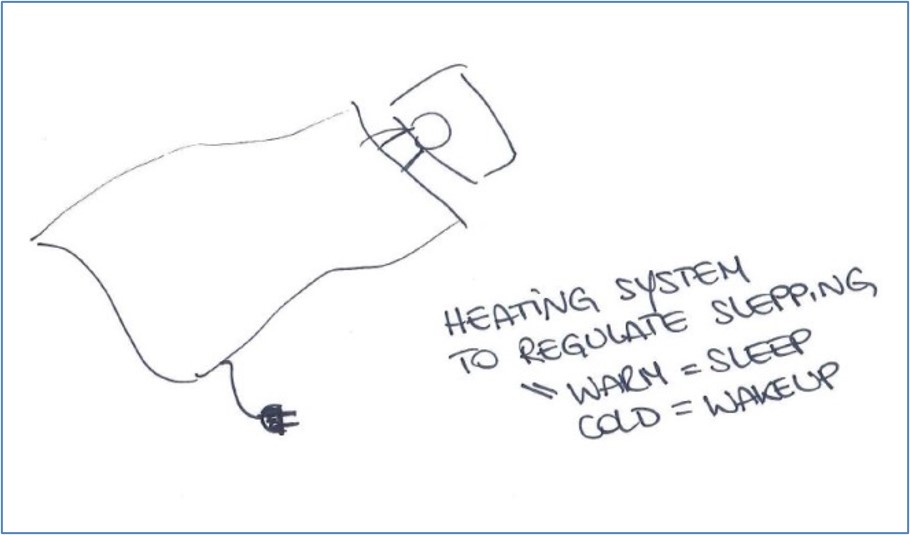 HEATING SYSTEM
TO REGULATE SLEPPING
\\ WARM = SLEEP
COLD = WAKEUP